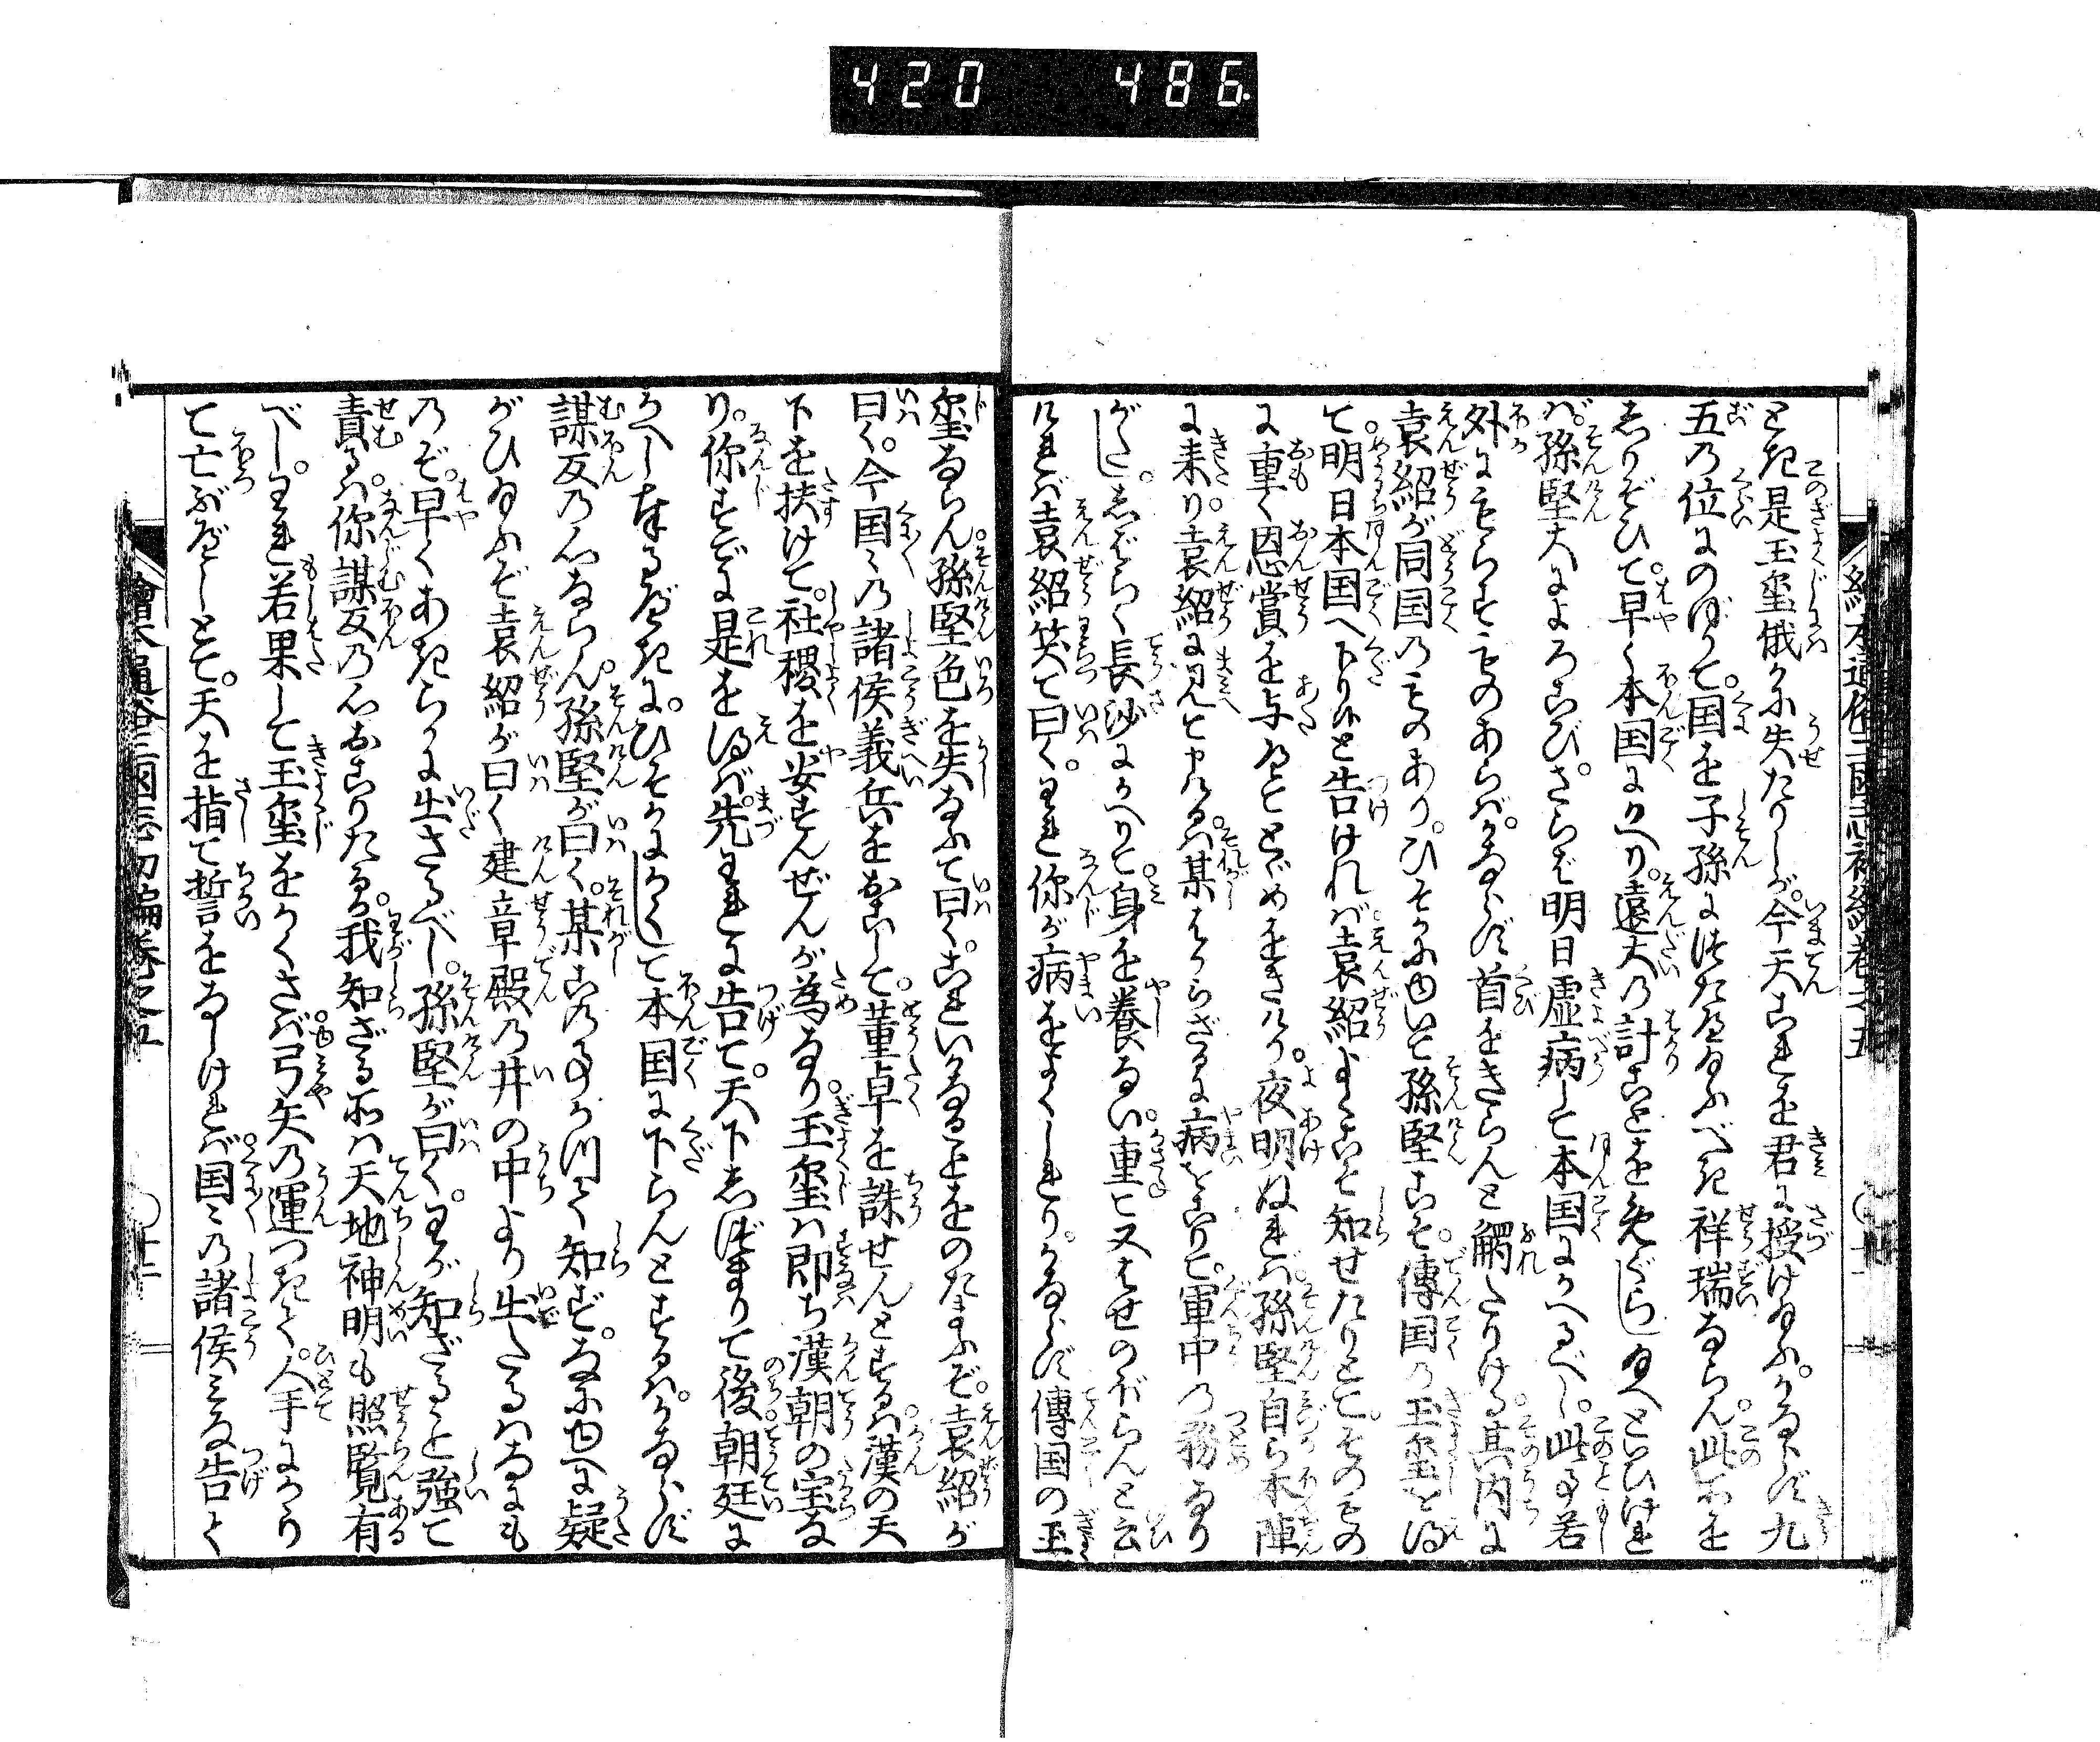 420 486
とき是玉璽俄に失たりしが。今天これを君に授け給ふ。かならず九
五の位にのぼりて。国を子孫につたへ給ふべき祥瑞ならん。此所を
しりぞひて。早く本国にかへり。遠大の計ことを免ぐらし給へといひけれ
ば。孫堅大によろこび。さらば明日虚病して本国にかへるべし。此事若
外にもらすものあらば。かならず首をきらんと觸たりける。其内に
袁紹が同国のものあり。ひそかにゆいて孫堅こそ。傳国の玉璽を得
て。明日本国へ下り候と告ければ。袁紹よくこそ知せたりとて。そのもの
に重く恩賞を与へてとどめをきけり。夜明ぬれば。孫堅自ら本陣
に来り。袁紹に見へて申けるは。某はからざるに病をこりて。軍中の務なり
がたし。しばらく長沙にかへりて。身を養ない。重て又はせのぼらんと云
ければ。袁紹笑て曰く。われ你が病をよくしれり。かならず傳国の玉
璽ならん。孫堅色を失なふて曰く。これいかなることをのたまふぞ。袁紹が
曰く。今国〻の諸侯義兵をおこして。董卓を誅せんとするは。漢の天
下を扶けて。社稷を安すんぜんが為なり。玉璽は即ち漢朝の宝な
り。你すでに是を得ば。先われに告て。天下しづまりて後。朝廷に
かへし奉るべきに。ひそかにかくして本国に下らんとするは。かならず
謀反の心ならん。孫堅が曰く。某この事かつて知ず。なにゆへに疑
がひ給ふぞ。袁紹が曰く建章殿の井の中より出たるはなにも
のぞ。早くあきらかに出さるべし。孫堅が曰く。わが知ざることを強て
責るは。你謀反の心おこりたる。我知ざる所は天地神明も照覧有
べし。われ若果して玉璽をかくさば。弓矢の運つきて。人手にかかり
て亡ぶべしとて。天を指て誓をなしければ。国〻の諸侯みな告て